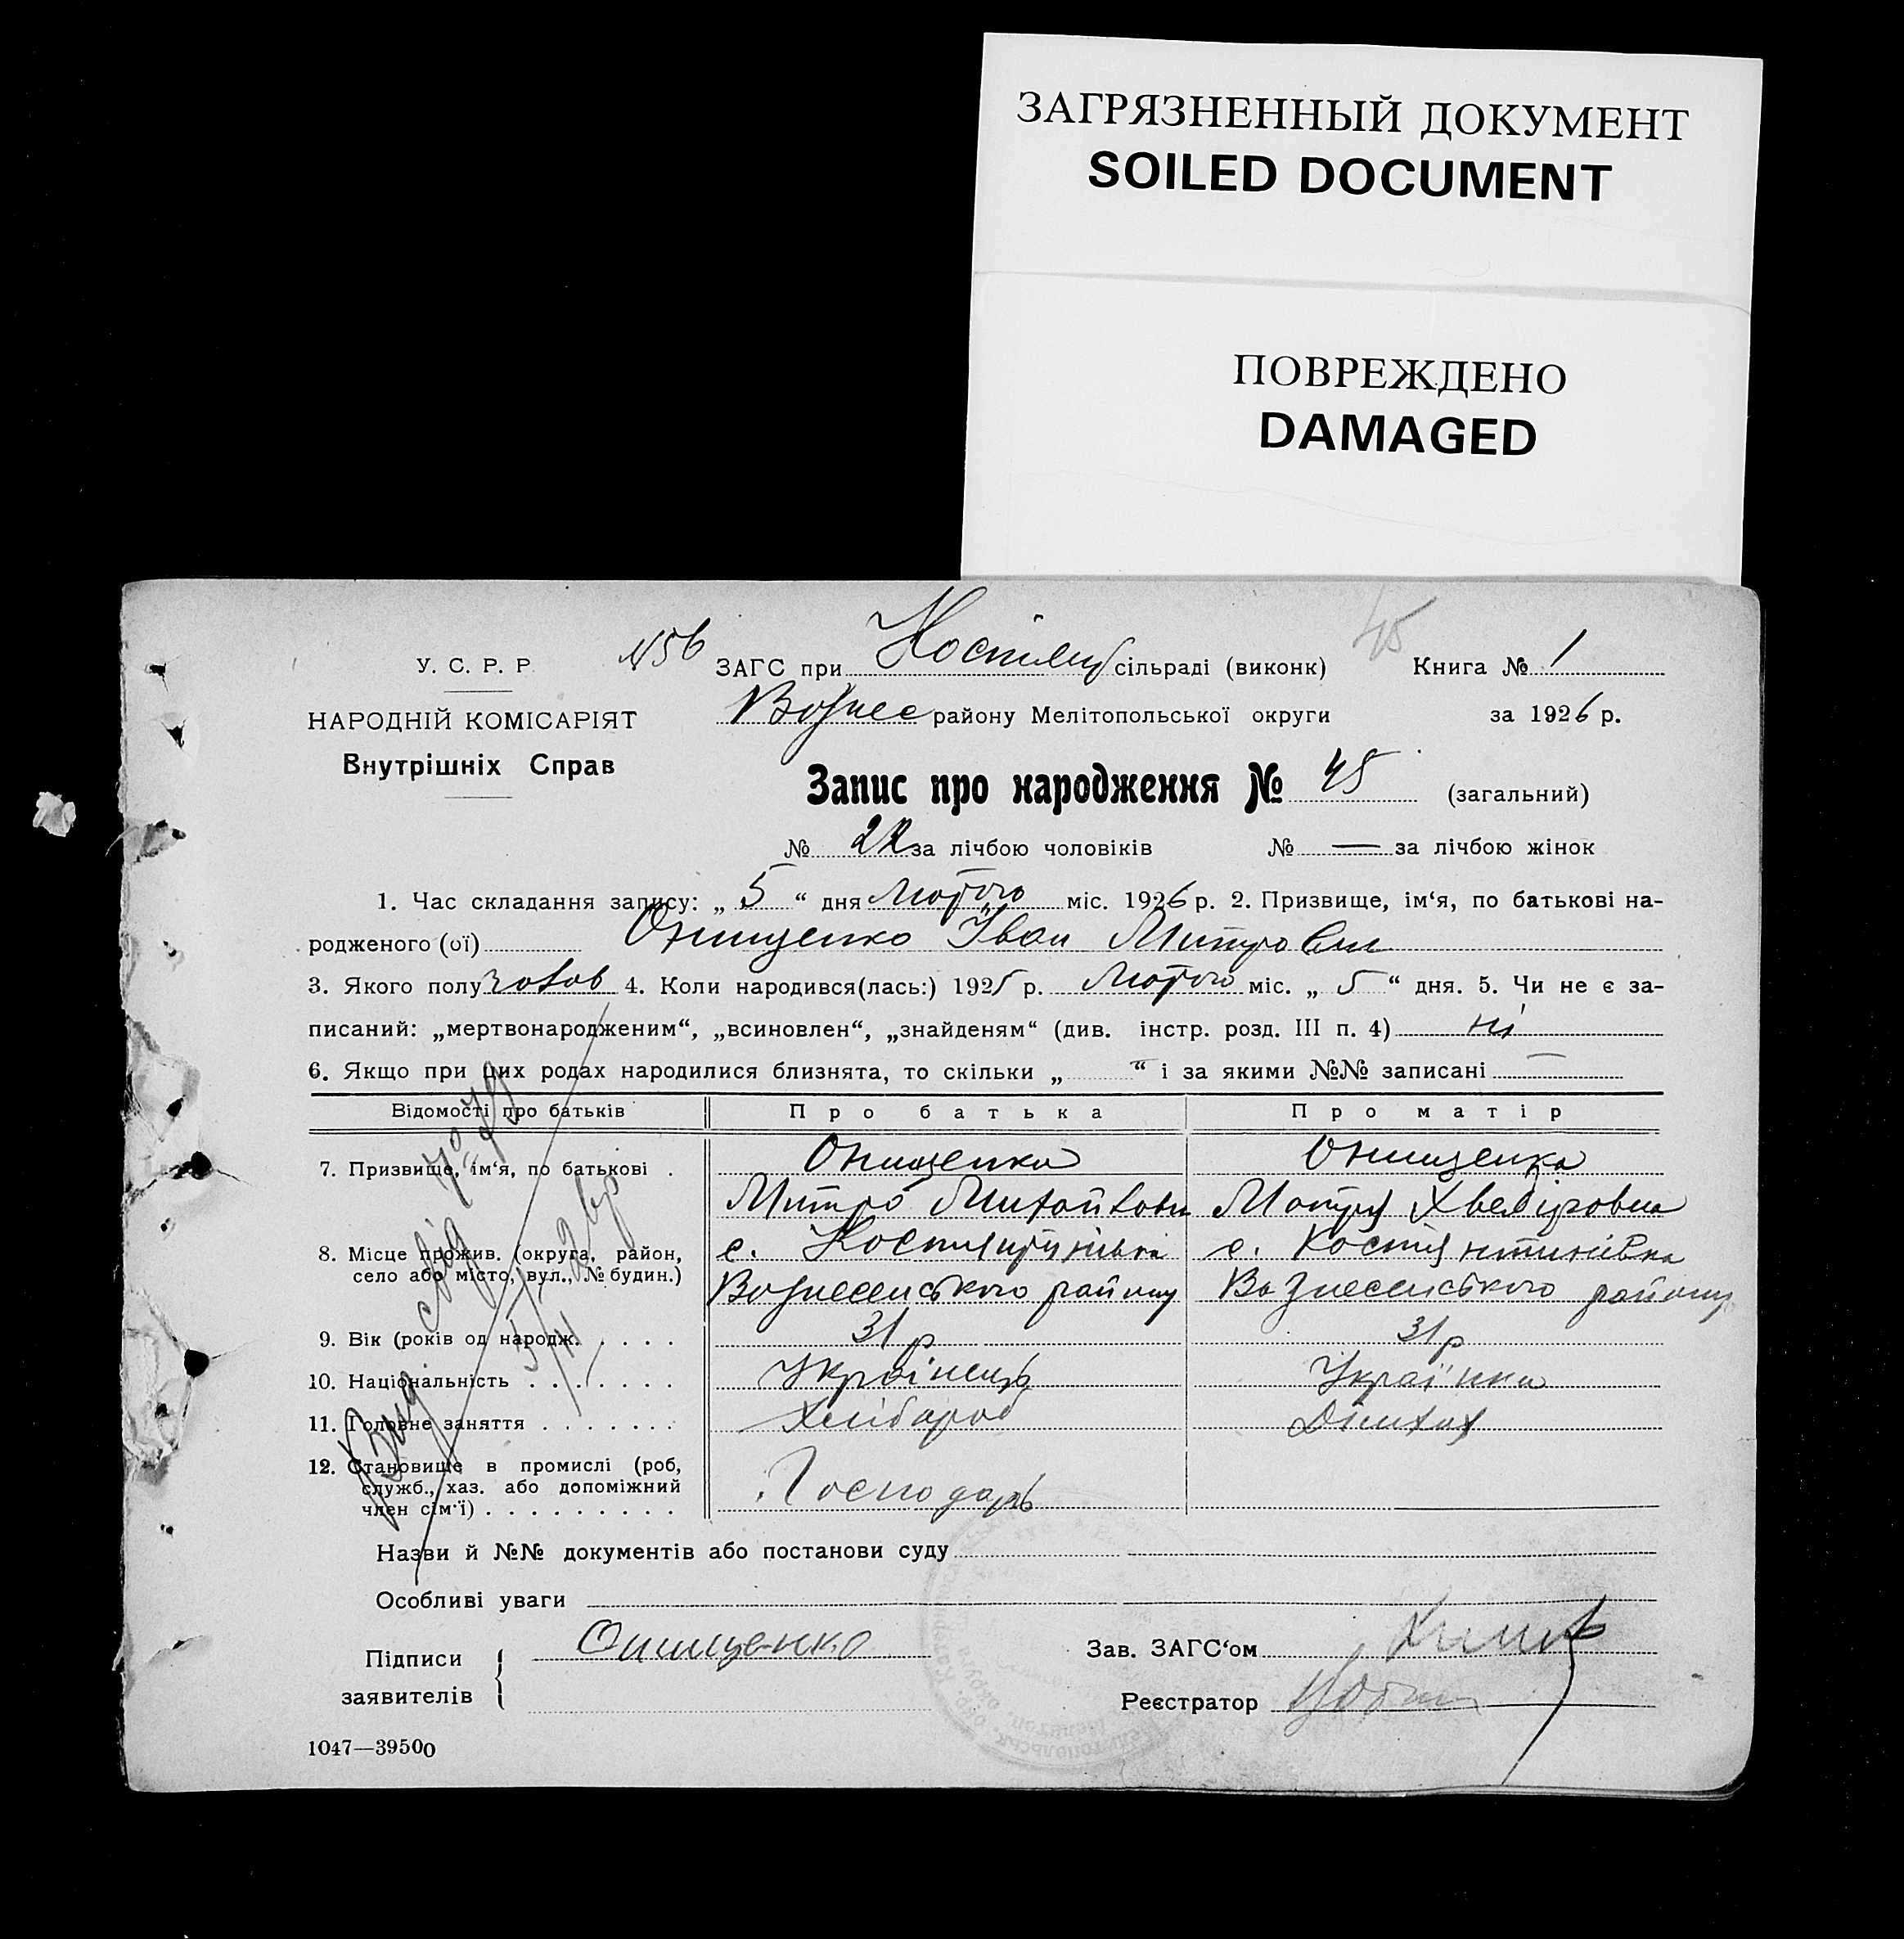 ЗАГРЯЗНЕННЫЙ ДОКУМЕНТ
SOILED DOCUMENT
ПОВРЕЖДЕНО
DAMAGED
У. С. Р. Р
НАРОДНІЙ КОМІСАРІЯТ
Внутрішніх Справ
№56 ЗАГС при Костянт сільраді (виконк) 45 Книга № 1
Вознес району Мелітопольської округи за 1926 р.
Запис про народження № 45 (загальний)
№ 22 за лічбою чоловіків № — за лічбою жінок
1. Час складання запису: „ 5 “ дня Лютого міс. 1926 р. 2. Призвище, ім‘я, по батькові на-
родженого (ої) Онищенко Іван Митрович
3. Якого полу чолов 4. Коли народився(лась:) 1925 р. Лютого міс. „ 5 “ дня. 5. Чи не є за-
писаний: „мертвонародженим“, „всиновлен“, „знайденям“ (див. інстр. розд. III п. 4) ні
6. Якщо при цих родах народилися близнята, то скільки „ — “ і за якими №№ записані —
Відомості про батьків Про батька Про матір
7. Призвище, ім‘я, по батькові . Онищенко Онищенка
Митро Михайлови Мотря Хведіровна
8. Місце прожив. (округа, район, с. Костянтинівка с. Костянтинівка
село або місто, вул., № будин.) Вознесенського району Вознесенського району
9. Вік (років од народж. . . . . 31 р 31 р
10. Національність . . . . . . . Українець Українка
11. Головне заняття . . . . . . . Хлібороб
12. Становище в промислі (роб,
служб., хаз. або допоміжний Господарь
член сім‘ї) . . . . . . . . .
Назви й №№ документів або постанови суду
Особливі уваги
Підписи Онищенко Зав. ЗАГС‘ом
заявителів Реєстратор
1047—39500